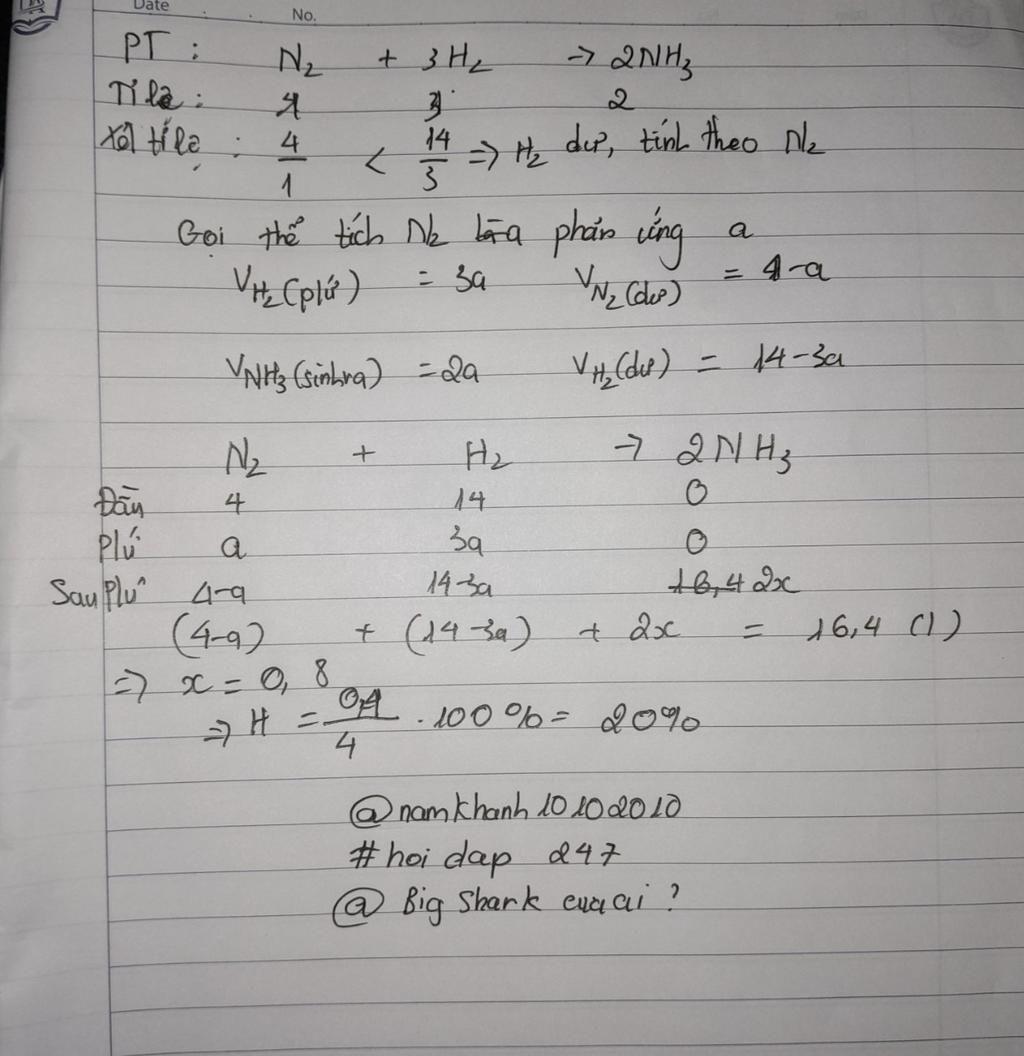 Date No.
PT : N₂ + 3H₂ → 2NH₃
Tỉ lệ : 1 3 2
Xét tỉ lệ : 4/1 < 14/3 => H₂ dư, tính theo N₂
Gọi thể tích N₂ phản ứng a
V H₂(pứ) = 3a V N₂(dư) = 4-a
V NH₃(sinh ra) = 2a V H₂(dư) = 14-3a
N₂ + H₂ → 2NH₃
4 14 0
Pứ a 3a 0
Sau Pứ 4-a 14-3a 16,4 2x
(4-a) + (14-3a) + 2x = 16,4 (1)
=> x = 0,8
=> H = /4 . 100% = 20%
@namkhanh10102010
#hoi dap 247
@ Big Shark cua ai ?